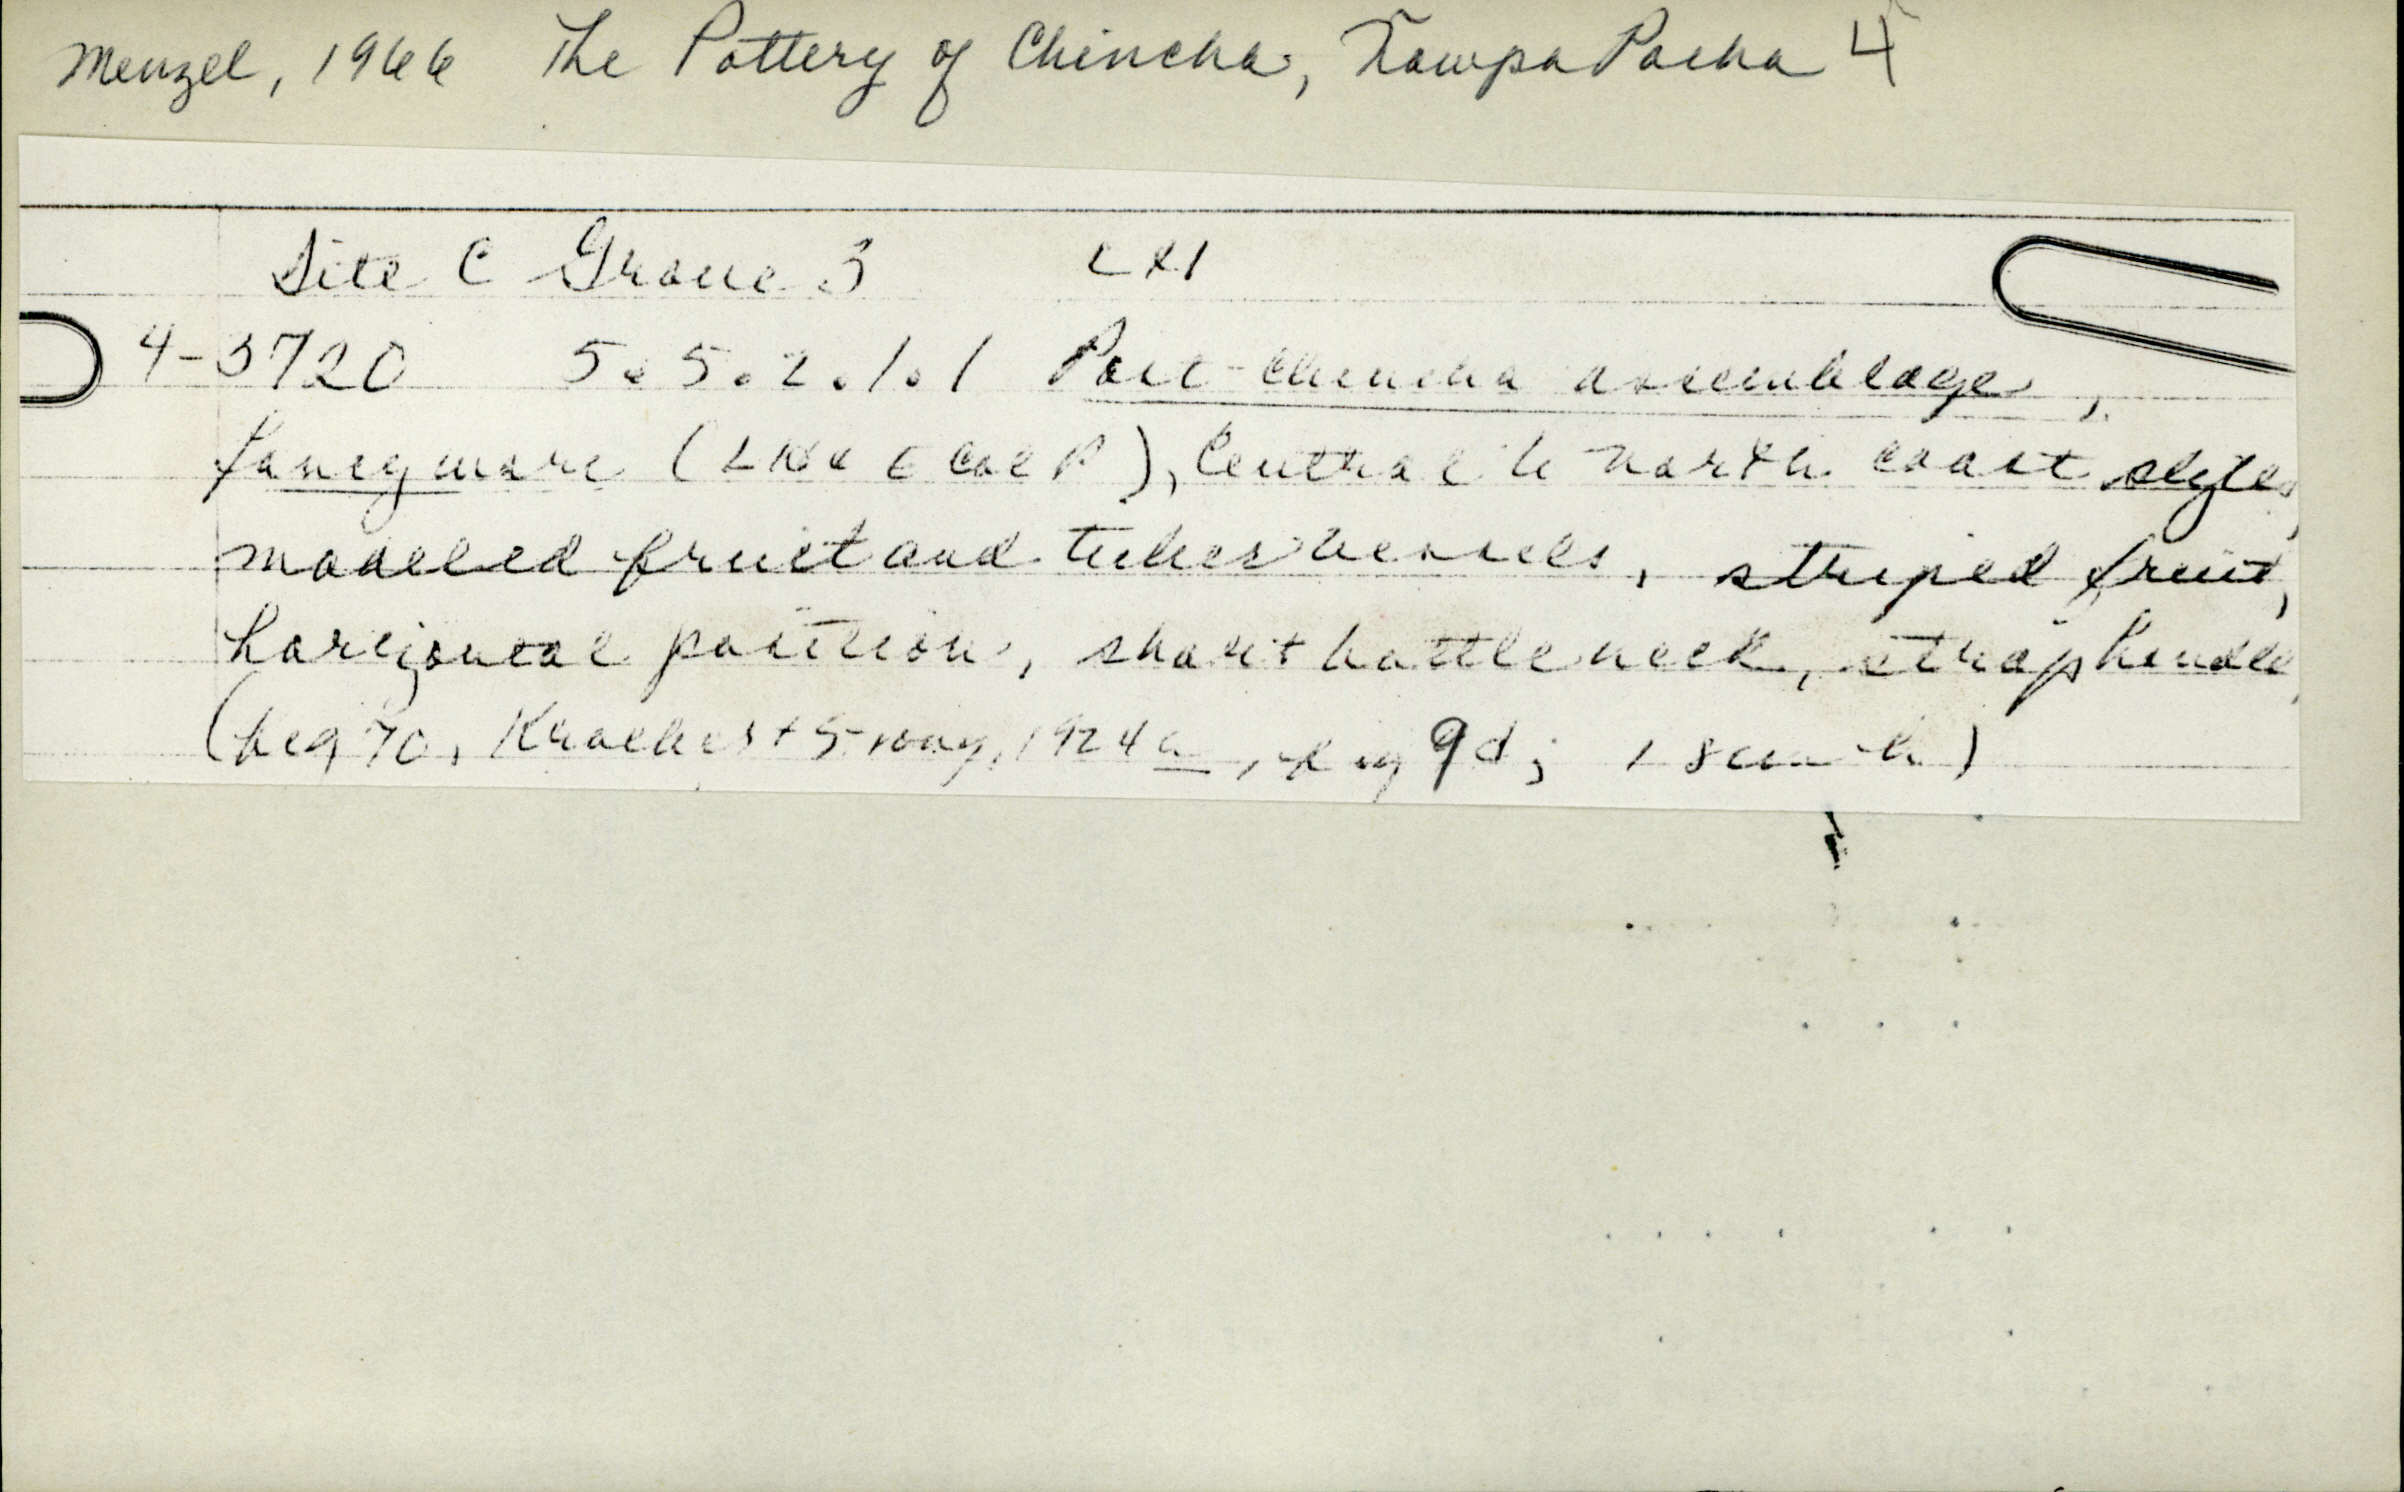 Menzel, 1966 The Pottery of Chincha, Ñawpa Pacha 4
Site C Grave 3
4-3720 5.5.2.1.1 Post-Chincha assemblage,
fancyware (LH & E Col P), Central to north coast style,
modeled fruit and tuber vessels, striped fruit,
horizontal position, short bottle neck, strap handle
(fig 70, Kroeber + Strong, 1924a, fig 9d; 18 cm h)